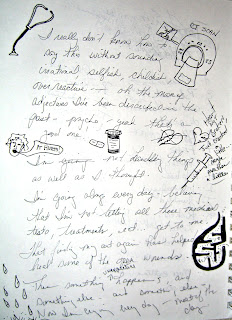 CT SCAN
I really don't know how to
say this without sounding
irrational, selfish, childish
over reactive — oh the many
adjectives I've been described in the
past - psycho - yeah thats a
good one!
I'm going not handling things
as well as I thought.
I'm going along every day - believing
that I'm not letting all these medical
tests, treatments, ect. get to me.
That finding my art again has helped
heal some of the wounds.
Then something happening, and
something else - and something else
Now I'm enjoy every day most of the
day